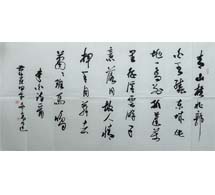 青山横北郭
白水绕东城此
地一为别孤蓬万
里征浮云游子
意落日故人情
挥手自兹去
萧萧班马鸣